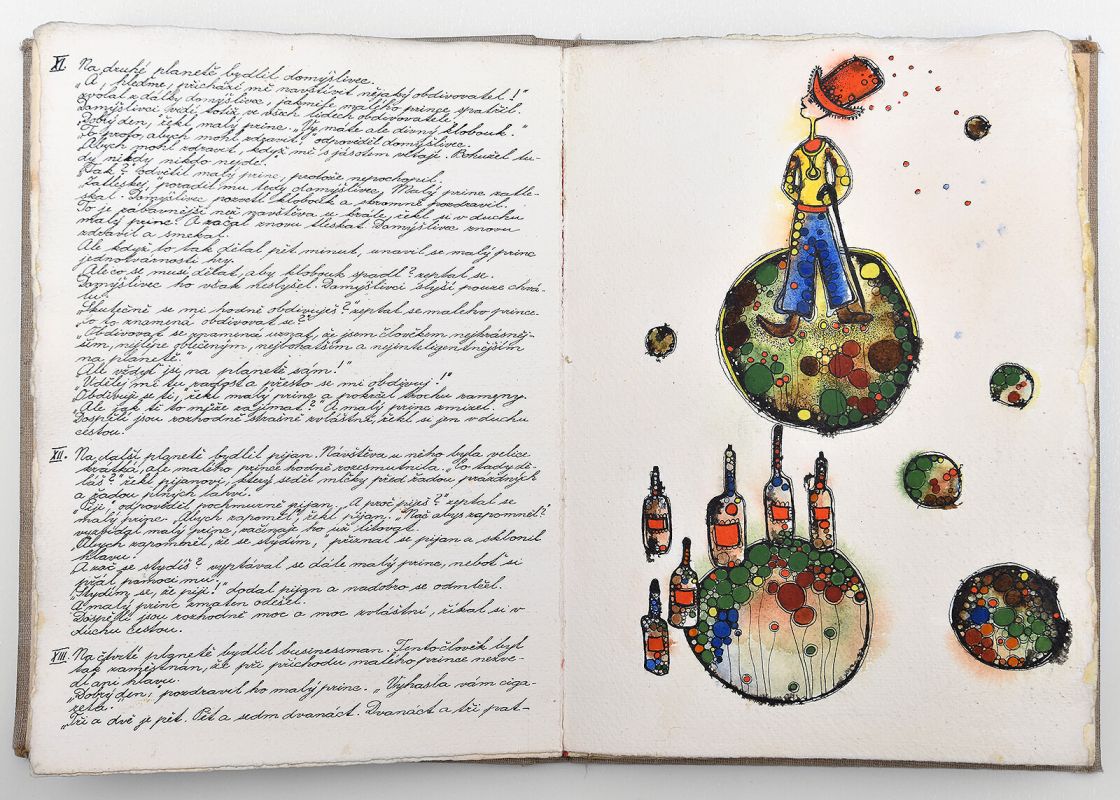 XI. Na druhé planetě bydlil domýšlivec.
„A, hleďme, přichází mě navštívit nějaký obdivovatel!"
zvolal z dálky domýšlivec, jakmile malého prince spatřil.
Domýšlivci vidí totiž ve všech lidech obdivovatele.
„Dobrý den, řekl malý princ. „Vy máte ale divný klobouk."
„To proto, abych mohl zdravit," odpověděl domýšlivec.
„Abych mohl zdravit, když mě s jásotem vítají. Bohužel tu-
dy nikdy nikdo nejde."
„Tak?" odvětil malý princ, protože nepochopil.
„Zatleskej, poradil mu tedy domýšlivec. Malý princ zatle-
skal. Domýšlivec pozvedl klobouk a skromně pozdravil.
To je zábavnější než návštěva u krále, řekl si v duchu
malý princ. A začal znovu tleskat. Domýšlivec znovu
zdravil a smekal.
Ale když to tak dělal pět minut, unavil se malý princ
jednotvárností hry.
„A co se musí dělat, aby klobouk spadl? zeptal se.
Domýšlivec ho však neslyšel. Domýšlivci slyší pouze chvá-
lu.
„Skutečně se mi hodně obdivuješ?" zeptal se malého prince.
„Co to znamená obdivovat se?"
„Obdivovat se znamená uznat, že jsem člověkem nejkrásněj-
ším, nejlépe oblečeným, nejbohatším a nejinteligentnějším
na planetě."
„Ale vždyť jsi na planetě sám!"
„Udělej mě tu radost a přesto se mi obdivuj!"
„Obdivuji se ti," řekl malý princ a pokrčil trochu rameny.
„Ale jak tě to může zajímat?" A malý princ zmizel.
Dospělí jsou rozhodně strašně zvláštní, řekl si jen v duchu
cestou.
XII. Na další planetě bydlil pijan. Návštěva u něho byla velice
krátká, ale malého prince hodně rozesmutnila. „Co tady dě-
láš?" řekl pijanovi, který seděl mlčky před řadou prázdných
a řadou plných lahví.
„Piji," odpověděl pochmurně pijan. „A proč piješ?" zeptal se
malý princ. „Abych zapomněl", řekl pijan. „Nač abys zapomněl?"
vyzvídal malý princ, začínaje ho už litovat.
„Abych zapomněl, že se stydím," přiznal se pijan a sklonil
hlavu.
„A zač se stydíš? vyptával se dále malý princ, neboť si
přál pomoci mu.
„Stydím se, že piji!" dodal pijan a nadobro se odmlčel.
A malý princ zmaten odešel.
Dospělí jsou rozhodně moc a moc zvláštní, říkal si v
duchu cestou.
XIII. Na čtvrté planetě bydlil businessman. Tento člověk byl
tak zaměstnán, že při příchodu malého prince nezve-
dl ani hlavu.
„Dobrý den, pozdravil ho malý princ. „Vyhasla vám ciga-
reta."
„Tři a dvě je pět. Pět a sedm dvanáct. Dvanáct a tři pat-